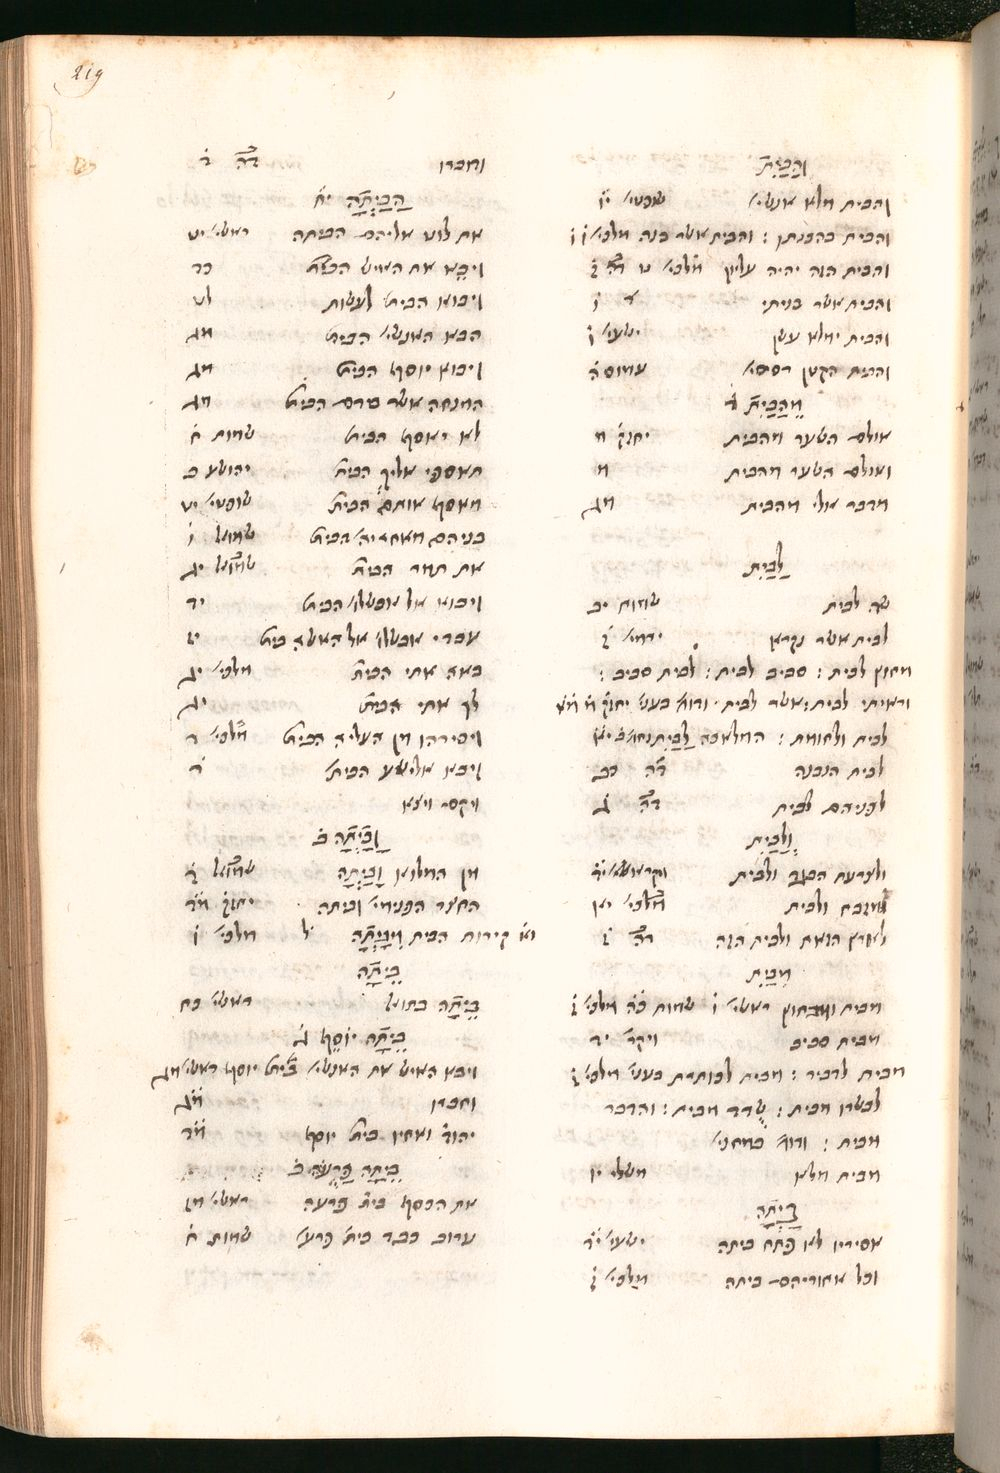 219
וְהַבַּיִת
והבית מלא אנשי׳ שפטי׳ יו
והבית בהבנתו : והבית אשר בנה מלכי׳ ו ו
והבית הזה יהיה עליון מלכי׳ ט דה̇ ז
והבית אשר בניתי ו
והבית ימלא עשן ישעי׳ ו
והבית הקטן רסיס׳ עמוס ה
מֵהַבַּיִת ג
אולם השער מהבית יחזק׳ מ
ואולם השער מהבית מ
מדבר אלי מהבית מג
לַבַּיִת
שה לבית שמות יב
לבית אשר נקרא ירמי׳ ז
מחוץ לבית : סביב לבית : לבית סביב :
וראיתי לבית : אשר לבית
לבית ולחומת : המלאכה לַבַּיִת
לבית הנבנה דה̇ כב
לפניהם לבית דה̇ ג
וְלַבַּיִת
ולצרעת הבגד ולבית ויקרא יד
למזבח ולבית מלכי׳ יא
לארץ הזאת ולבית הזה דה̇ ז
מִבַּיִת
מבית ומבחוץ ראשי׳ ו שמות כה מלכי׳ ז
מבית סביב ויקר׳ יד
מבית לדביר : מבית לכותרת בעני׳ מלכי׳ ז
לבשרו מבית : שֻׁדד מבית : והדבר
מבית : ודוק במחני׳
מבית מלא משלי יז
בַּיְתָה
אסיריו לא פתח ביתה ישעי׳ יד
וכל אחוריהם ביתה מלכי׳ ז
וחברו דה̇ ד
הַבַּיְתָה יח
את לוט אליהם הביתה ראשי׳ יט
ויבא את האיש הבית׳ כד
ויבוא הבית׳ לעשות לט
הבא האנשי׳ הבית׳ מג
ויבוא יוסף הבית׳ מג
המנחה אשר בידם הבית׳ מג
לא יאסף הבית׳ שמות ח
תאספי אליך הבית׳ יהושע ב
מאסף אותם הבית׳ שופטי׳ יט
בניהם מאחריה׳ הבית׳ שמואל ו
את תמר הבית׳ שמואל יג
ויבוא אל אבשלו׳ הבית׳ יד
עבדי אבשלו׳ אל האשה בית׳ יז
באה אתי הבית׳ מלכי׳ יג
לך אתי הבית׳ יג
ויורידהו מן העליה הבית׳ מלכי׳
ויבא אלישע הבית׳ ד
ויקם ויצא
וָבַיְתָה ב
מן המלוא וָבַיְתָה שמואל ה
החצר הפנימי׳ וביתה יחזק׳ מד
קירות הבית מִבַּיְתָה מלכי׳ ו
בֵּיתָה
בֵּיתָה בתואל ראשי׳ כח
בֵּיתָה יוֹסֵף ג
ויבא האיש את האנשי׳ בית׳ יוסף ראשי׳ מג
וחברו מג
יהודה ואחיו בית׳ יוסף מד
בֵּיתָה פַרְעֹה ב
את הכסף בית׳ פרעה ראשי׳ מז
ערוב כבד בית׳ פרע׳ שמות ח